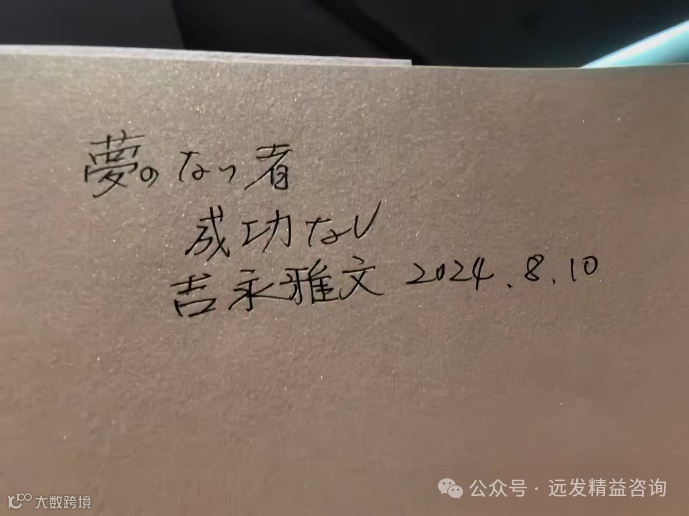 夢のない者
成功なし
吉永雅文 2024.8.10
公众号·远发精益咨询
大数跨境